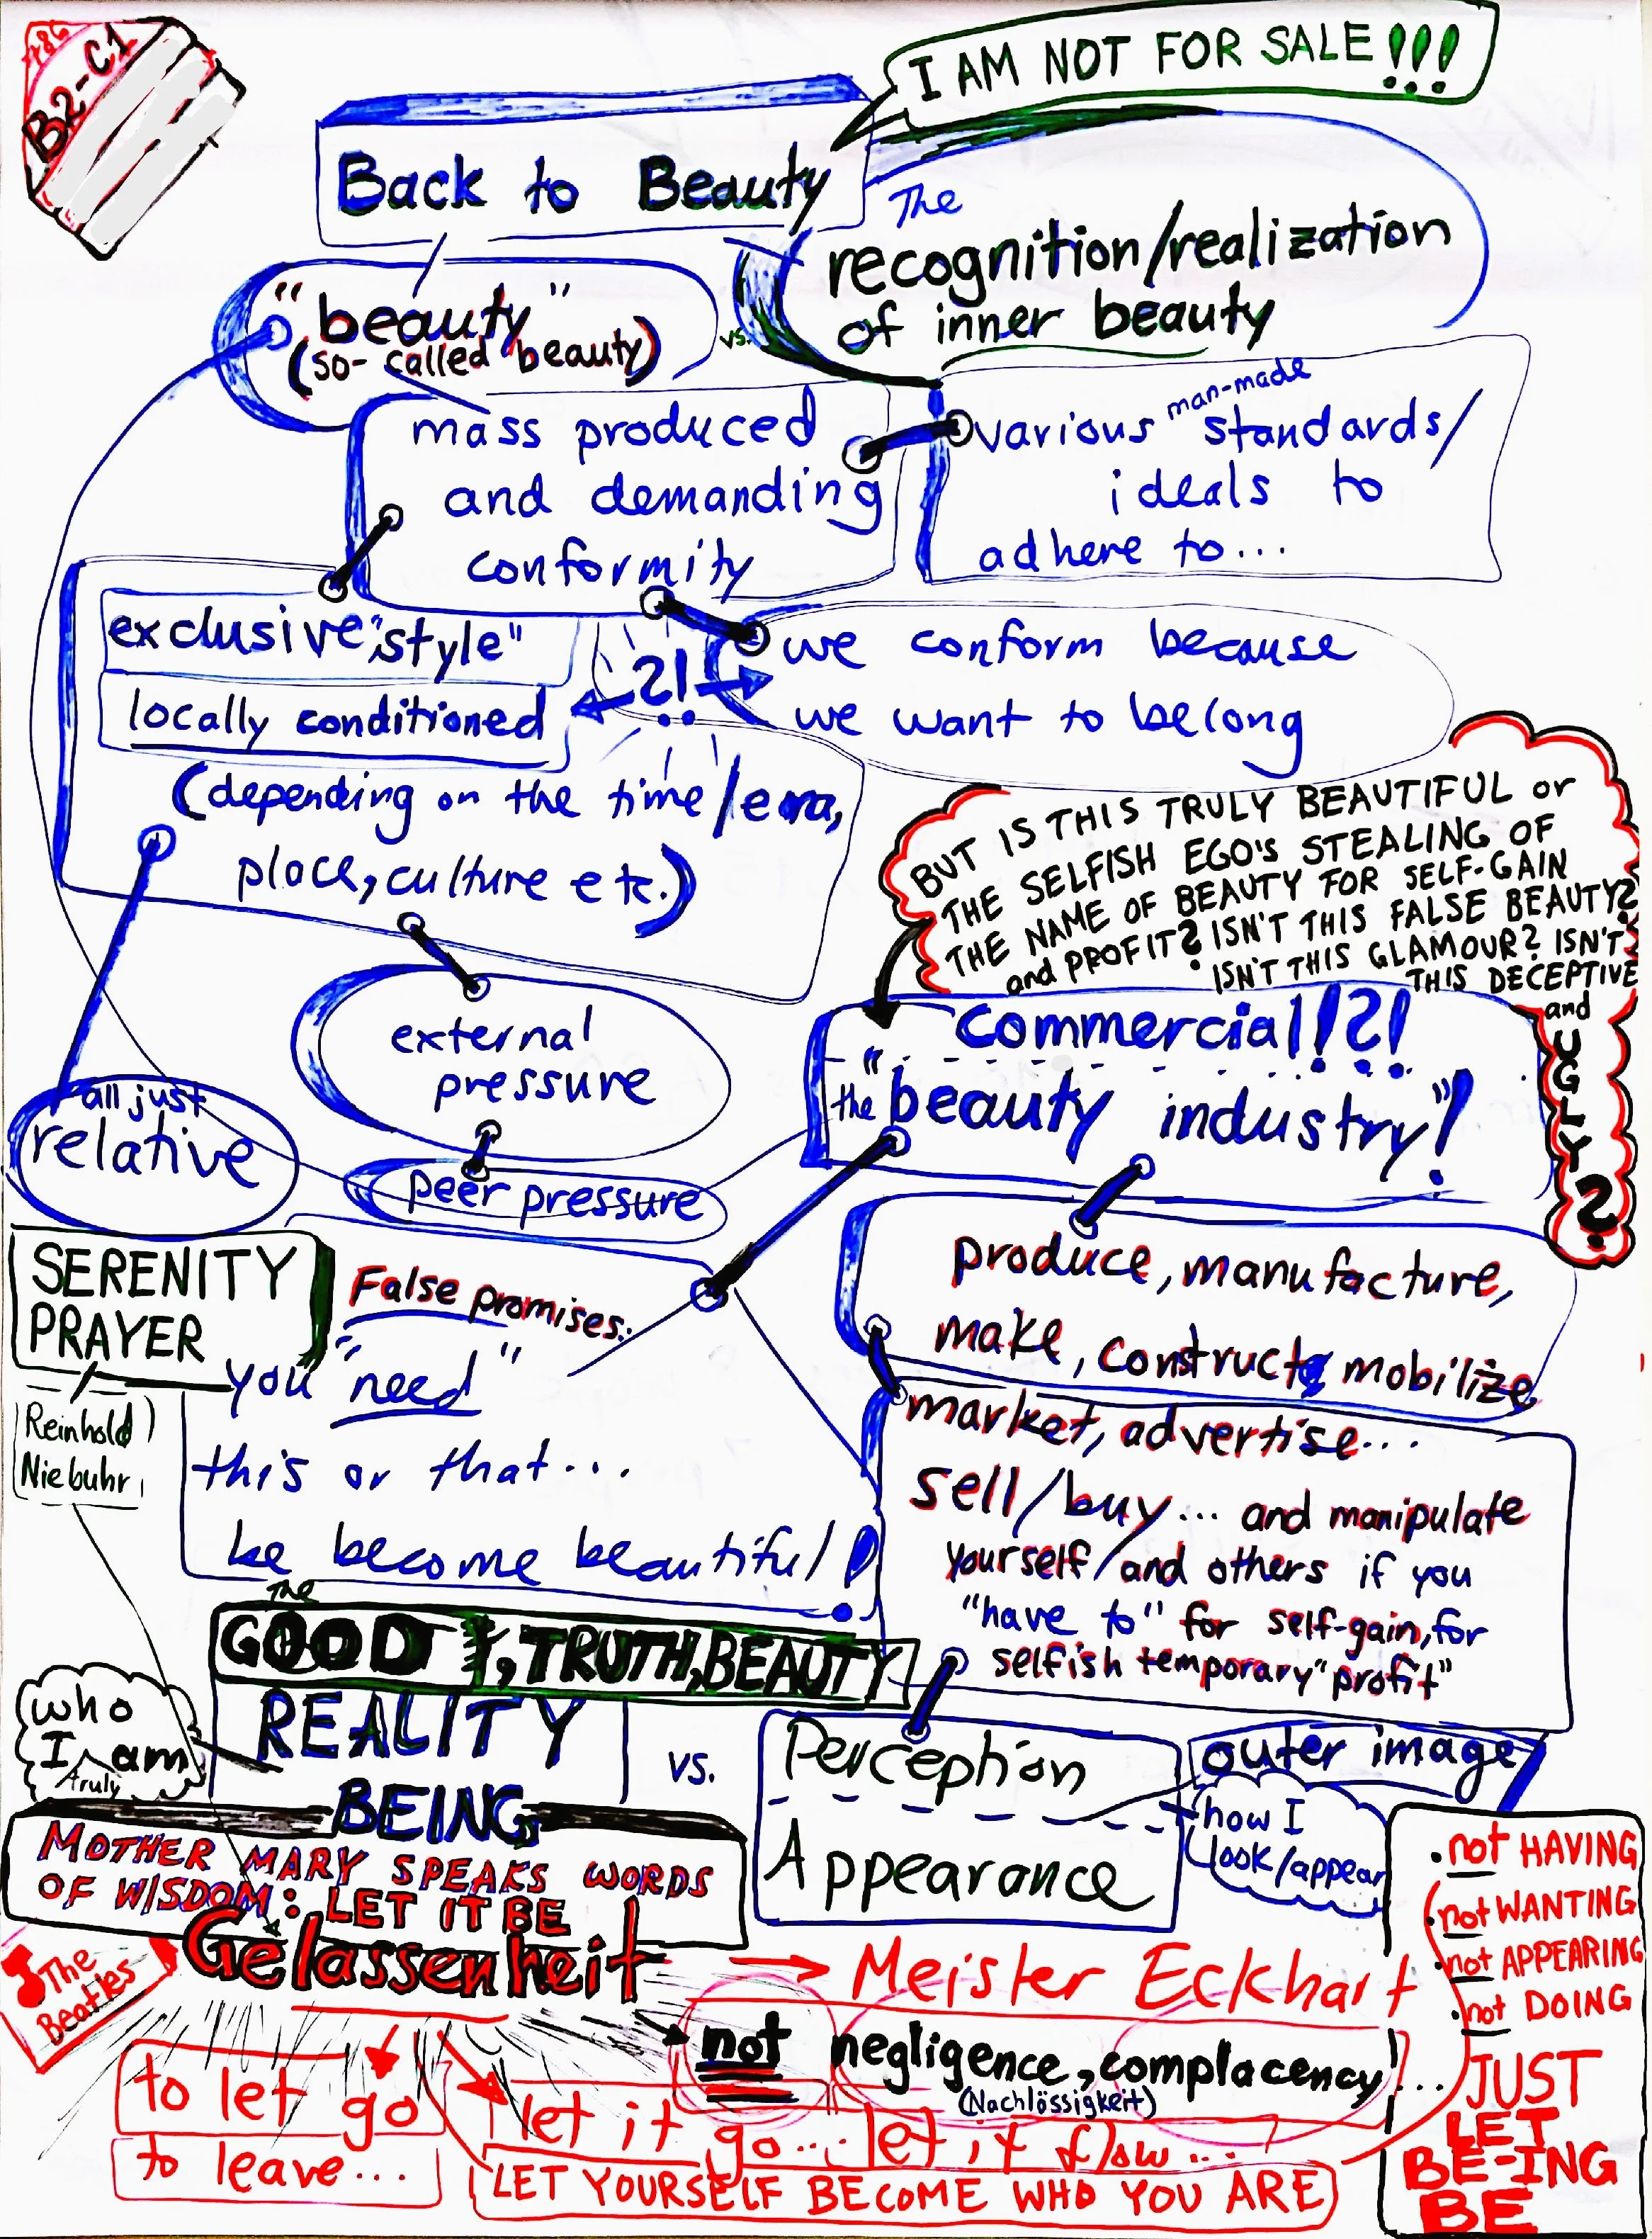 B2-C1
I AM NOT FOR SALE!!!
Back to Beauty
The
recognition/realization
of inner beauty
vs.
"beauty"
(so-called beauty)
mass produced
and demanding
conformity
various man-made standards/
ideals to
adhere to...
exclusive "style"
locally conditioned
(depending on the time/era,
place, culture etc.)
?!
we conform because
we want to belong
BUT IS THIS TRULY BEAUTIFUL or
THE SELFISH EGO'S STEALING OF
THE NAME OF BEAUTY FOR SELF-GAIN
and PROFIT? ISN'T THIS FALSE BEAUTY?
ISN'T THIS GLAMOUR? ISN'T
THIS DECEPTIVE
and
UGLY?
external
pressure
peer pressure
all just
relative
commercial!?!
the "beauty industry"!
produce, manufacture,
make, construct, mobilize
market, advertise...
sell/buy... and manipulate
yourself/and others if you
"have to" for self-gain, for
selfish temporary "profit"
SERENITY
PRAYER
Reinhold
Niebuhr
False promises:
you "need"
this or that...
be become beautiful!
The
GOOD, TRUTH, BEAUTY
REALITY
BEING
who
I truly am
vs.
Perception
Appearance
outer image
how I
look/appear
MOTHER MARY SPEAKS WORDS
OF WISDOM: LET IT BE
The
Beatles
Gelassenheit
Meister Eckhart
not negligence, complacency!...
(Nachlössigkeit)
to let go
to leave...
let it go... let it flow...
LET YOURSELF BECOME WHO YOU ARE
not HAVING
not WANTING
not APPEARING
not DOING
JUST
LET
BE-ING
BE